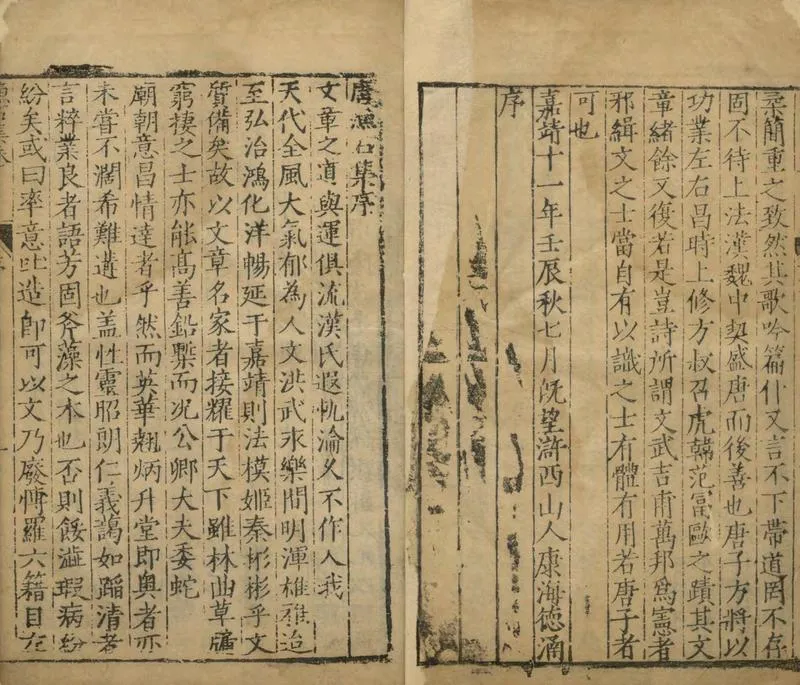 簡重之致然其歌吟篇什又言不下帶道罔不存
固不待上法漢魏中契盛唐而後善也唐子方將以
功業左右昌時上修方叔召虎韓范富歐之蹟其文
章緒餘又復若是豈詩所謂文武吉甫萬邦爲憲者
邪緝文之士當自有以識之士有體有用若唐子者
可也
嘉靖十一年壬辰秋七月旣望滸西山人康海德涵
序
唐漁石集序
文章之道與運俱流漢氏遐軌淪久不作入我
天代全風大氣郁為人文洪武永樂間明渾雄雅迨
至弘治鴻化洋暢延于嘉靖則法模姬秦彬彬乎文
質備矣故以文章名家者接耀于天下雖林曲草牖
窮棲之士亦能高善鉛槧而况公卿大夫委蛇
廟朝意昌情達者乎然而英華翹炳升堂即奥者亦
未嘗不濶希難遘也盖性靈昭朗仁義藹如蹈清者
言粹業良者語芳固斧藻之本也否則餒澁瑕病紛
紛矣或曰率意吐造即可以文乃廢愽羅六籍目左